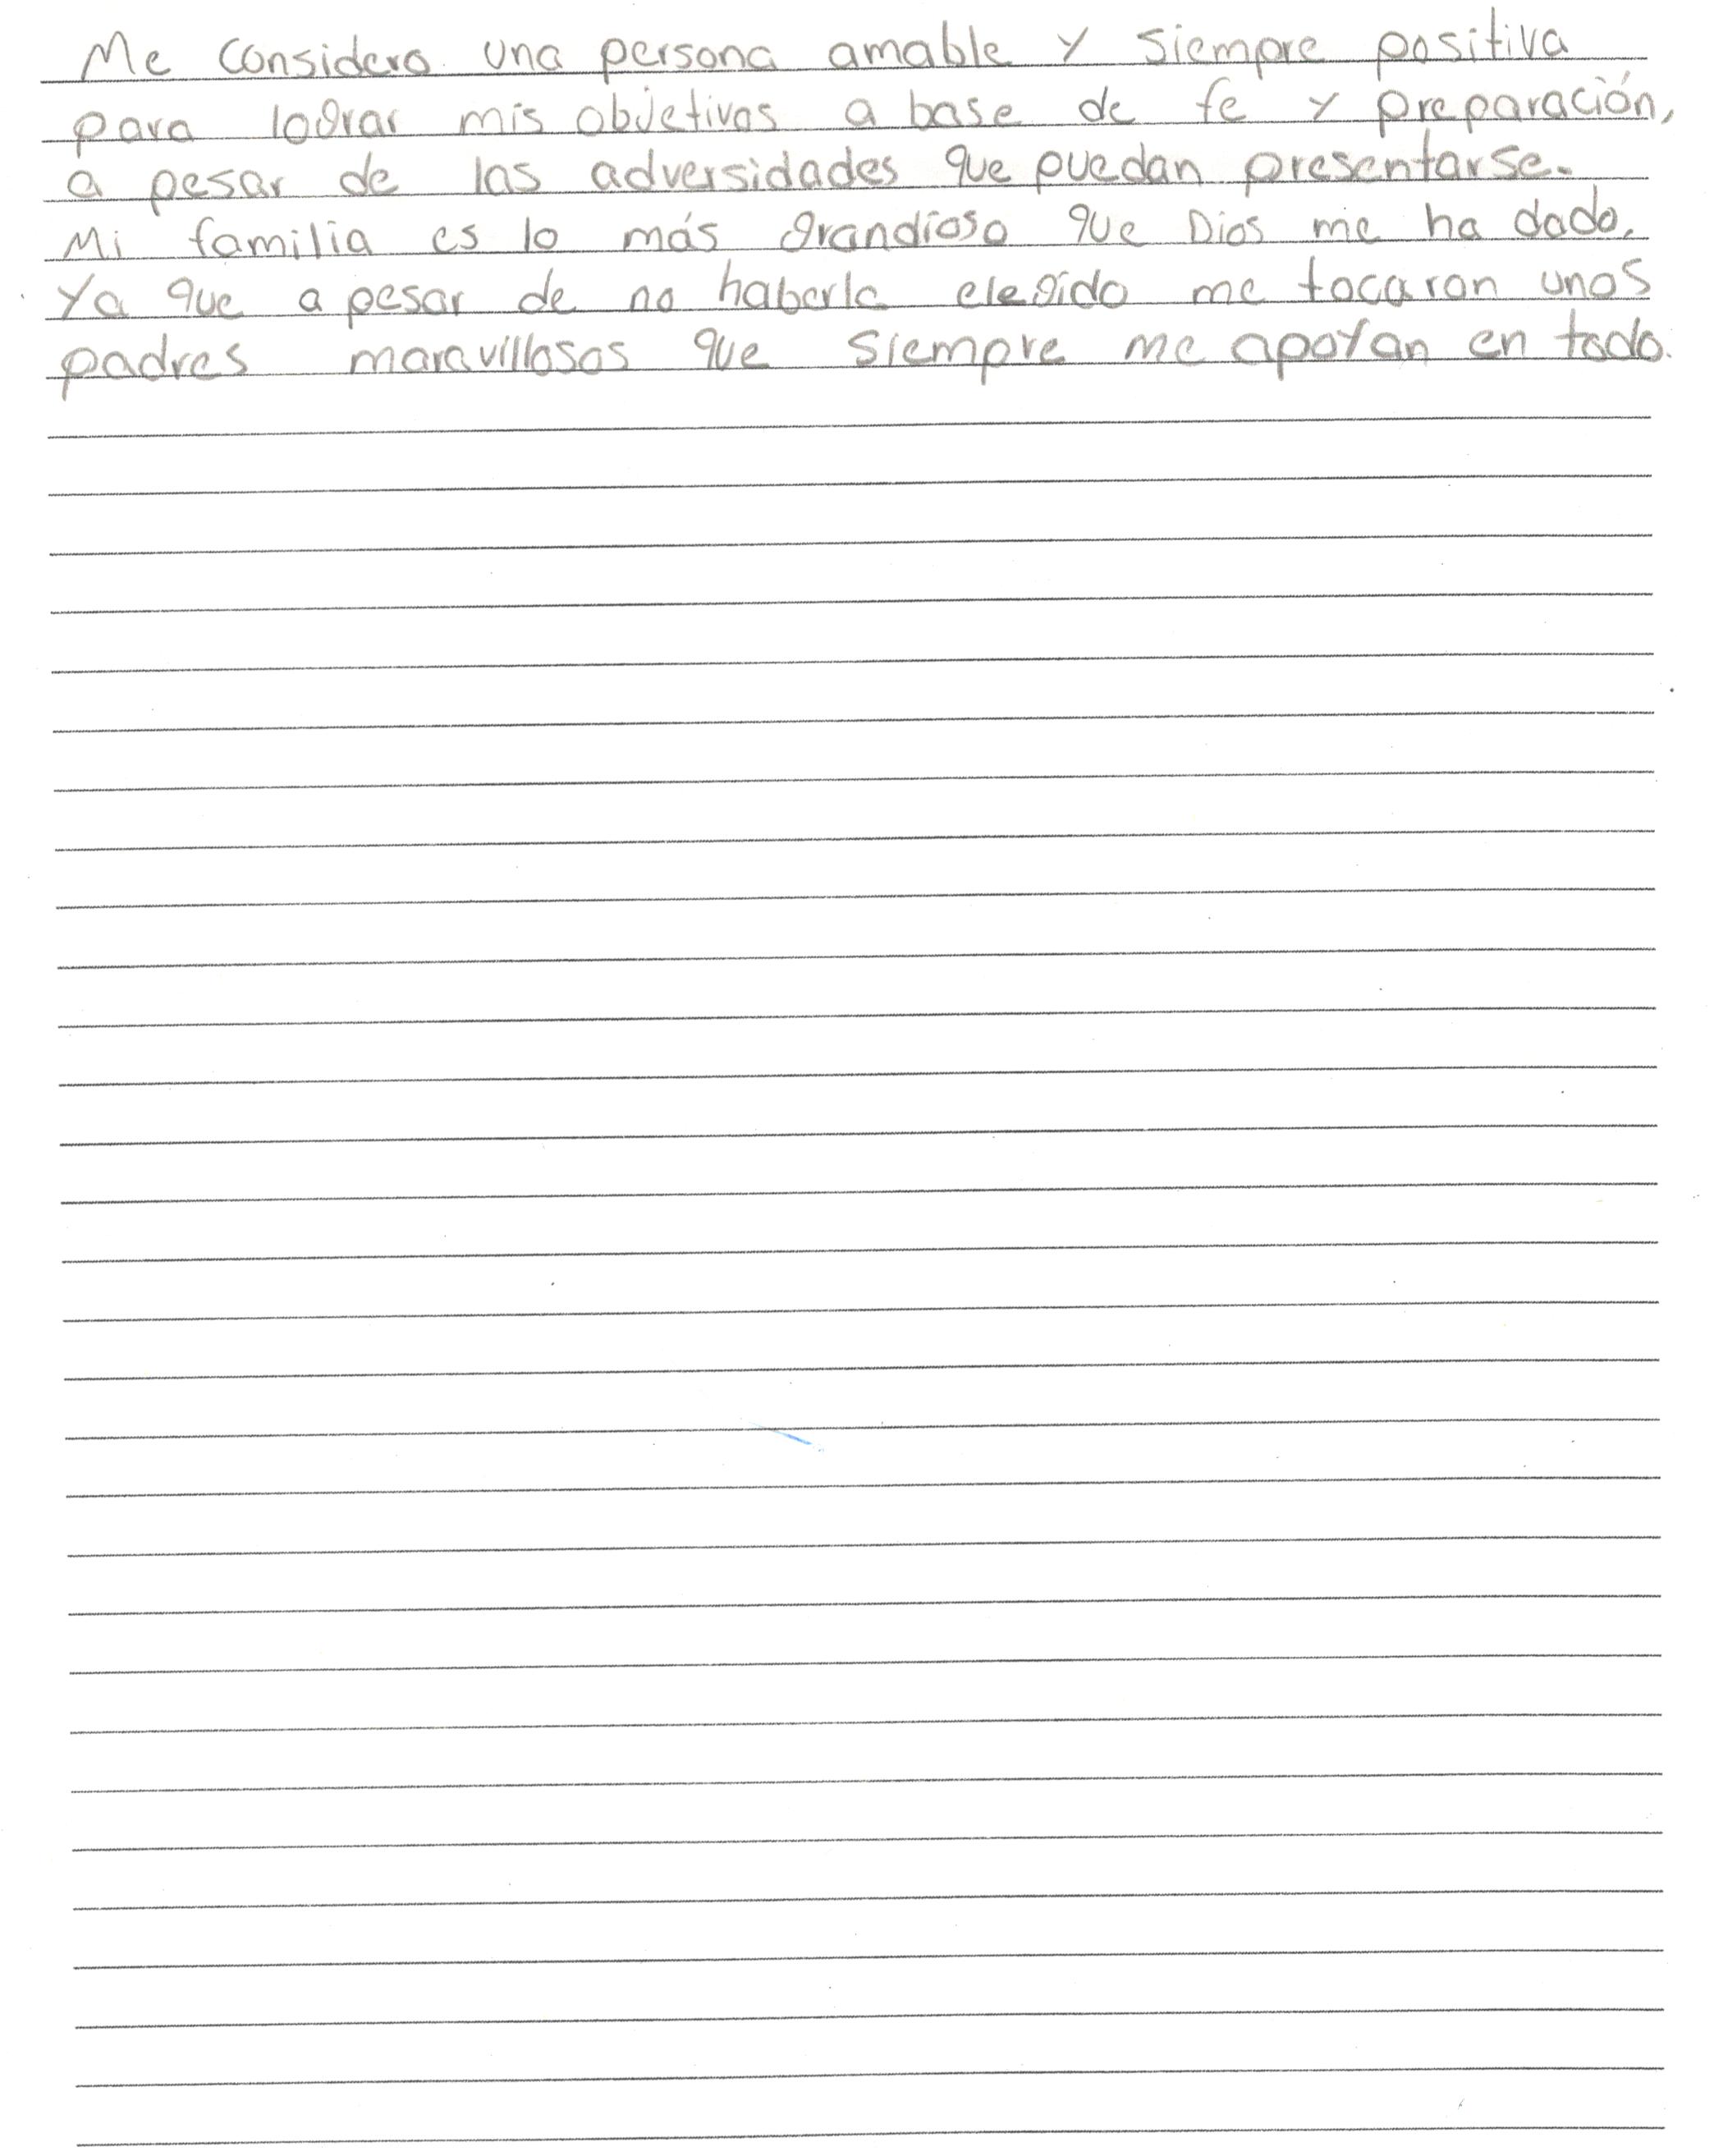 Me considero una persona amable y siempre positiva
para lograr mis objetivos a base de fe y preparación,
a pesar de las adversidades que puedan presentarse.
Mi familia es lo más grandioso que Dios me ha dado,
Ya que a pesar de no haberla elegido me tocaron unos
padres maravillosos que siempre me apoyan en todo.